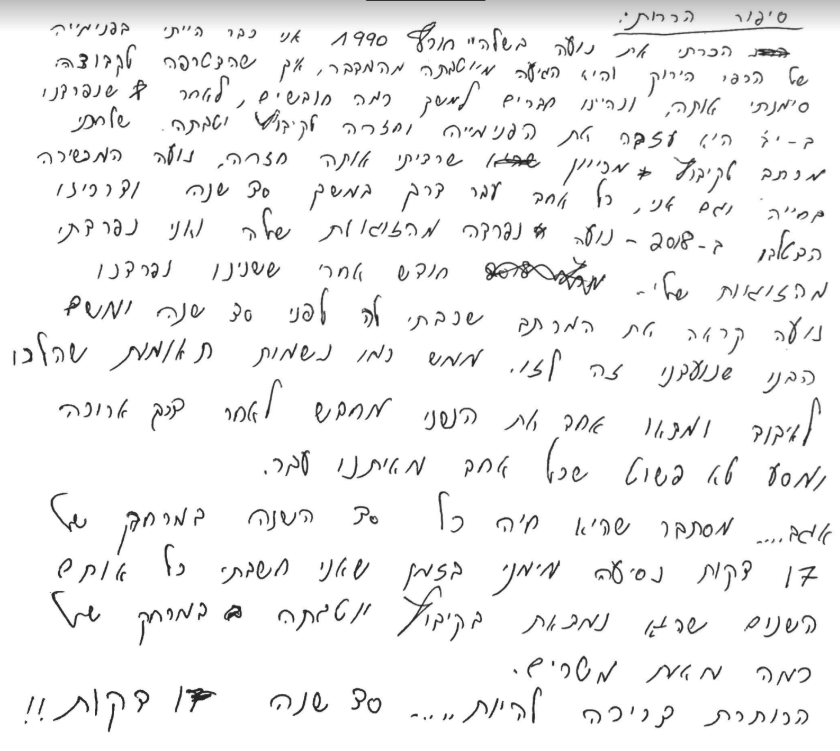 סיפור הכרות:
הכרתי את נועה בשלהיי חורף 1990 אני כבר הייתי בפנימייה
של הכפר הירוק והיא הגיעה מיוטבתה מהמדבר, איך שהצטרפה לקבוצה
סימנתי אותה, ונהיינו חברים למשך כמה חודשים, לאחר שנפרדנו
ב-י"ג היא עזבה את הפנימייה וחזרה לקיבוץ יטבתה. שלחתי
מכתב לקיבוץ מכייון שרציתי אותה חזרה, נועה המשיכה
בחייה וגם אני, כל אחד עבר דרך במשך 30 שנה ודרכינו
הצטלבו ב-2018 - נועה נפרדה מהזוגאות שלה ואני נפרדתי
מהזוגאות שלי- חודש אחרי ששנינו נפרדנו
נועה קראה את המכתב שכתבתי לה לפני 30 שנה ומשם
הבנו שנועדנו זה לזו. ממש כמו נשמות תאומות שהלכו
לאיבוד ומצאו אחד את השני מחדש לאחר דרך ארוכה
ומסע לא פשוט שכל אחד מאיתנו עבר.
אגב.... מסתבר שהיא חיה כל 30 השנה במרחק של
17 דקות נסיעה מימני בזמן שאני חשבתי כל אותם
השנים שהיא נמצאת בקיבוץ יוטבתה במרחק של
כמה מאות מטרים.
הכותרת צריכה להיות..... 30 שנה 17 דקות!!